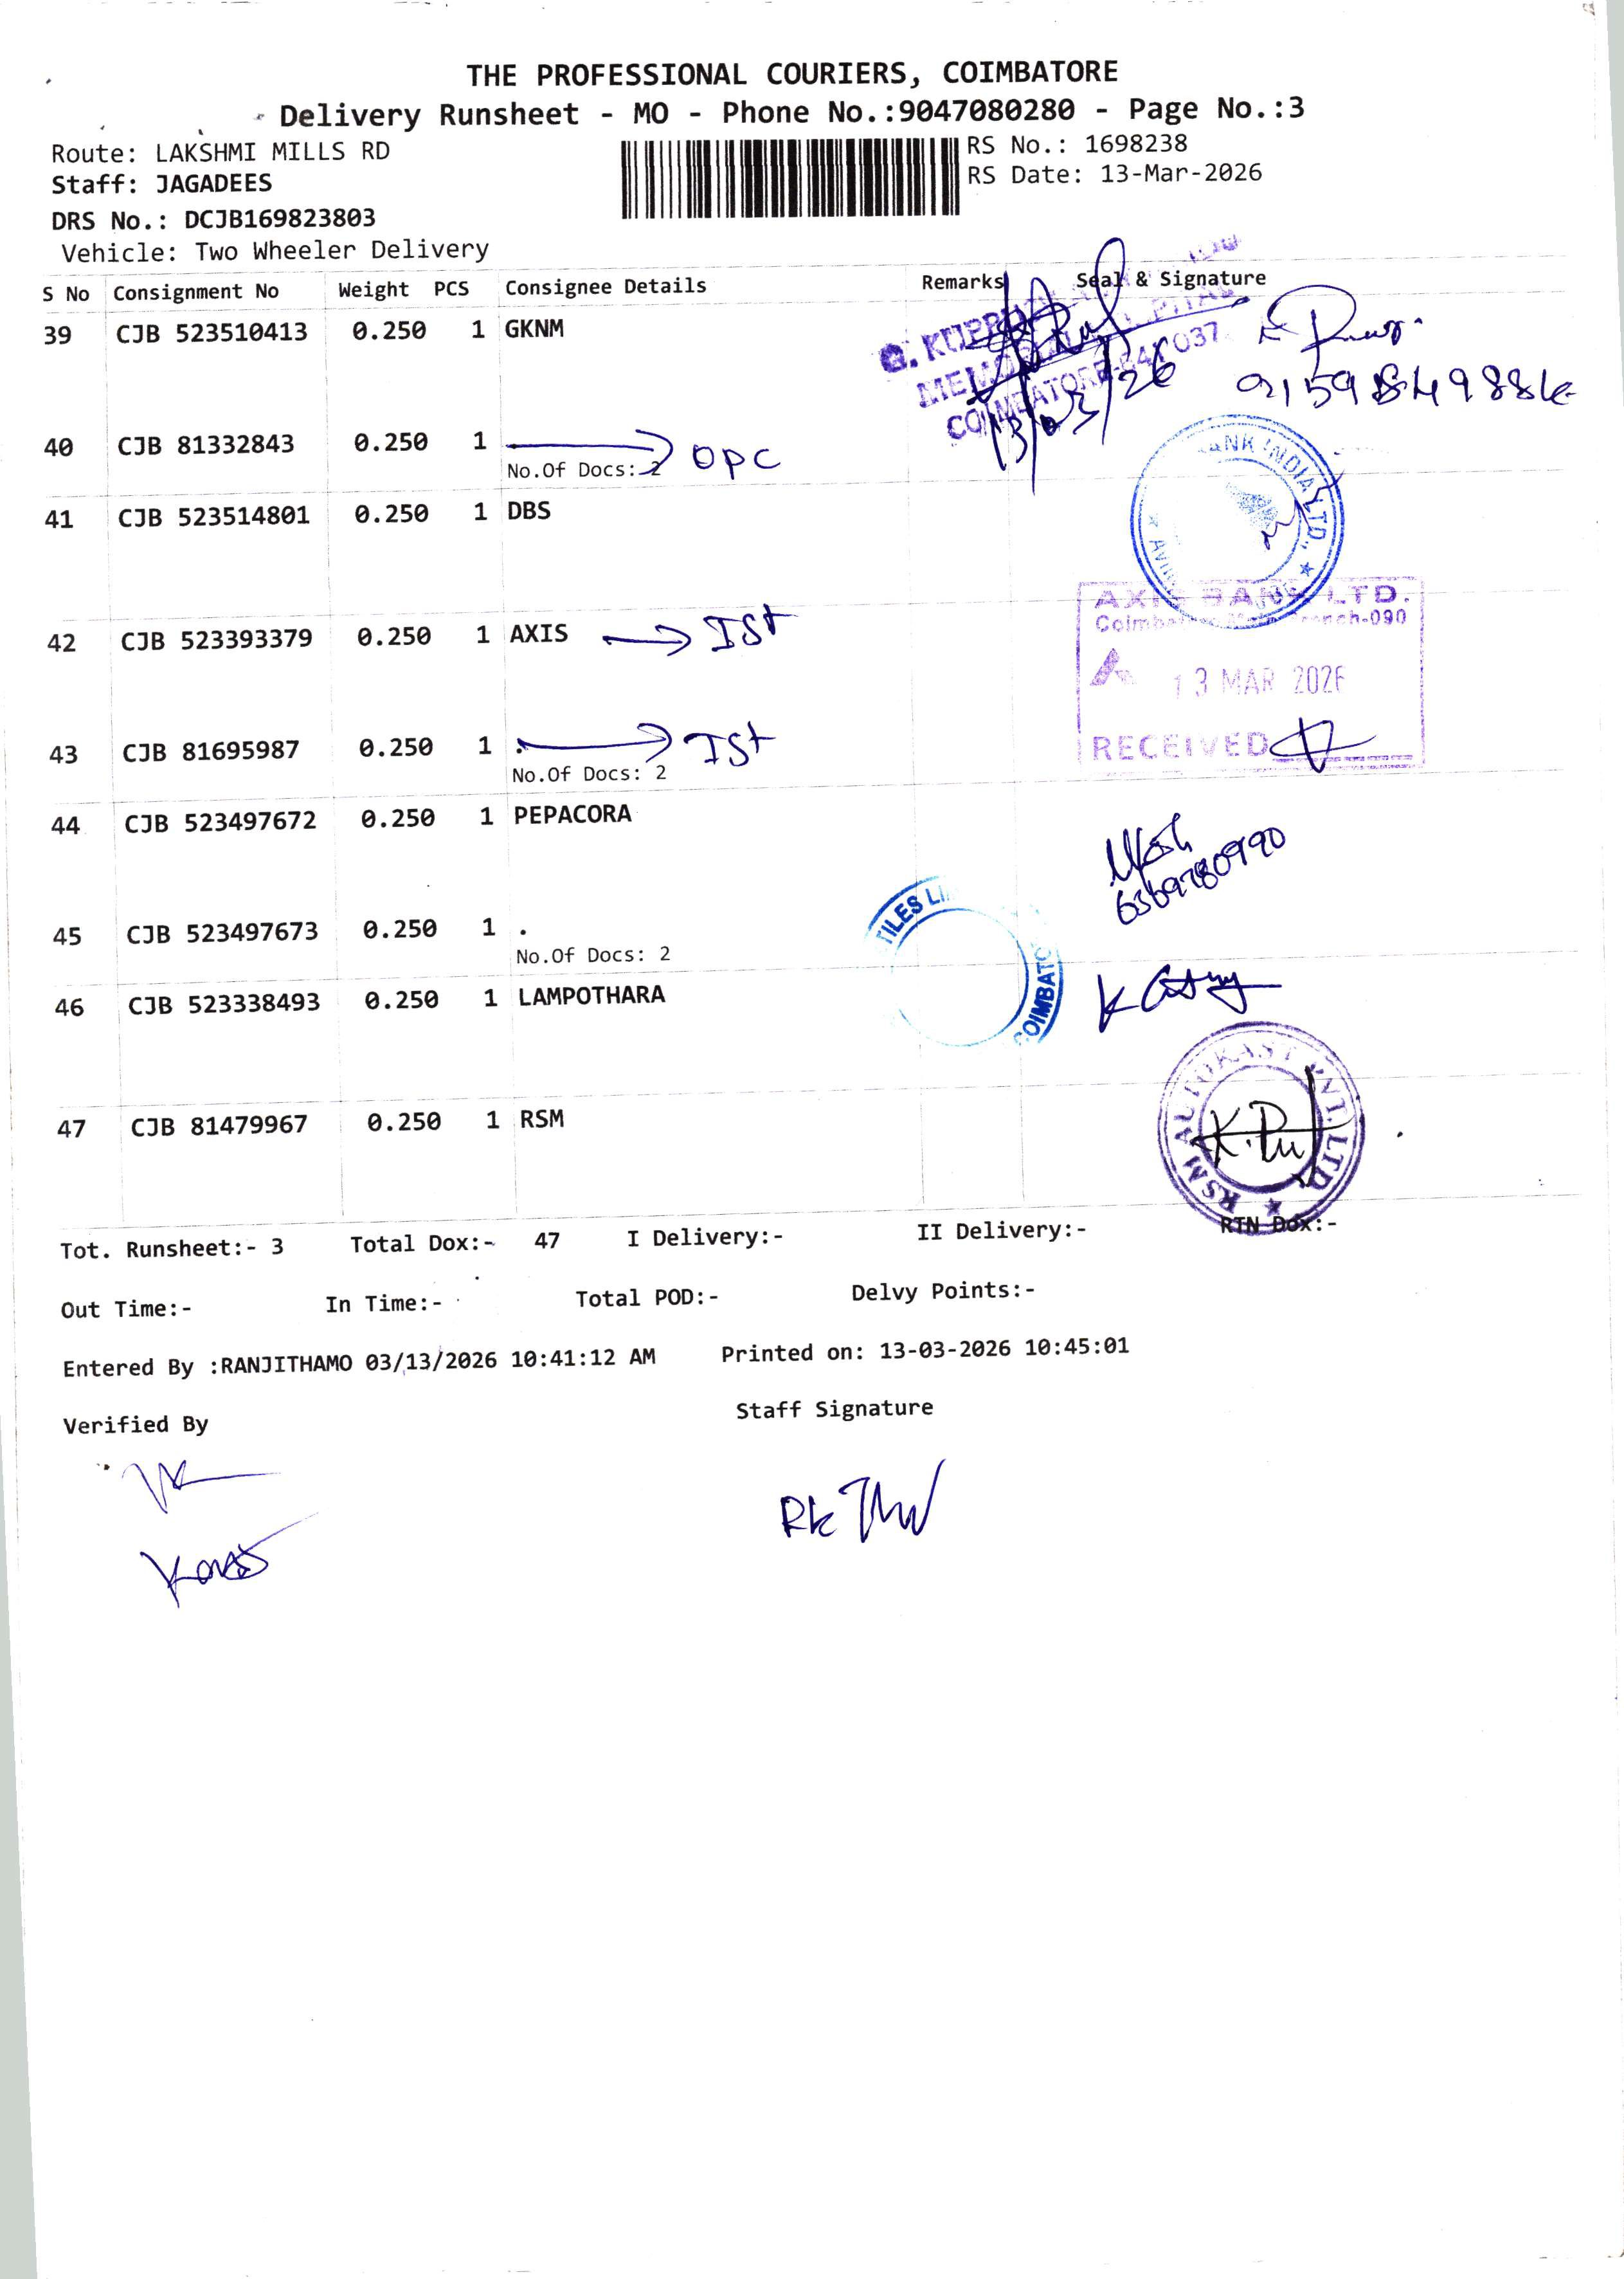 THE PROFESSIONAL COURIERS, COIMBATORE
Delivery Runsheet - MO - Phone No.:9047080280 - Page No.:3
Route: LAKSHMI MILLS RD
RS No.: 1698238
Staff: JAGADEES
RS Date: 13-Mar-2026
DRS No.: DCJB169823803
Vehicle: Two Wheeler Delivery
S No Consignment No Weight PCS Consignee Details Remarks Seal & Signature
39 CJB 523510413 0.250 1 GKNM
G. KUPPU
MEMORIAL
COIMBATORE-641 037
13/03/26
40 CJB 81332843 0.250 1 OPC
No.Of Docs: 2
41 CJB 523514801 0.250 1 DBS
BANK INDIA LTD.,
42 CJB 523393379 0.250 1 AXIS ISt
AXIS BANK LTD.
13 MAR 2026
RECEIVED
43 CJB 81695987 0.250 1 . ISt
No.Of Docs: 2
44 CJB 523497672 0.250 1 PEPACORA
6369780990
45 CJB 523497673 0.250 1 .
No.Of Docs: 2
TILES LI
COIMBATO
46 CJB 523338493 0.250 1 LAMPOTHARA
47 CJB 81479967 0.250 1 RSM
RSM AUTOKAST PVT. LTD.
Tot. Runsheet:- 3 Total Dox:- 47 I Delivery:- II Delivery:- RTN Dox:-
Out Time:- In Time:- Total POD:- Delvy Points:-
Entered By :RANJITHAMO 03/13/2026 10:41:12 AM Printed on: 13-03-2026 10:45:01
Verified By Staff Signature